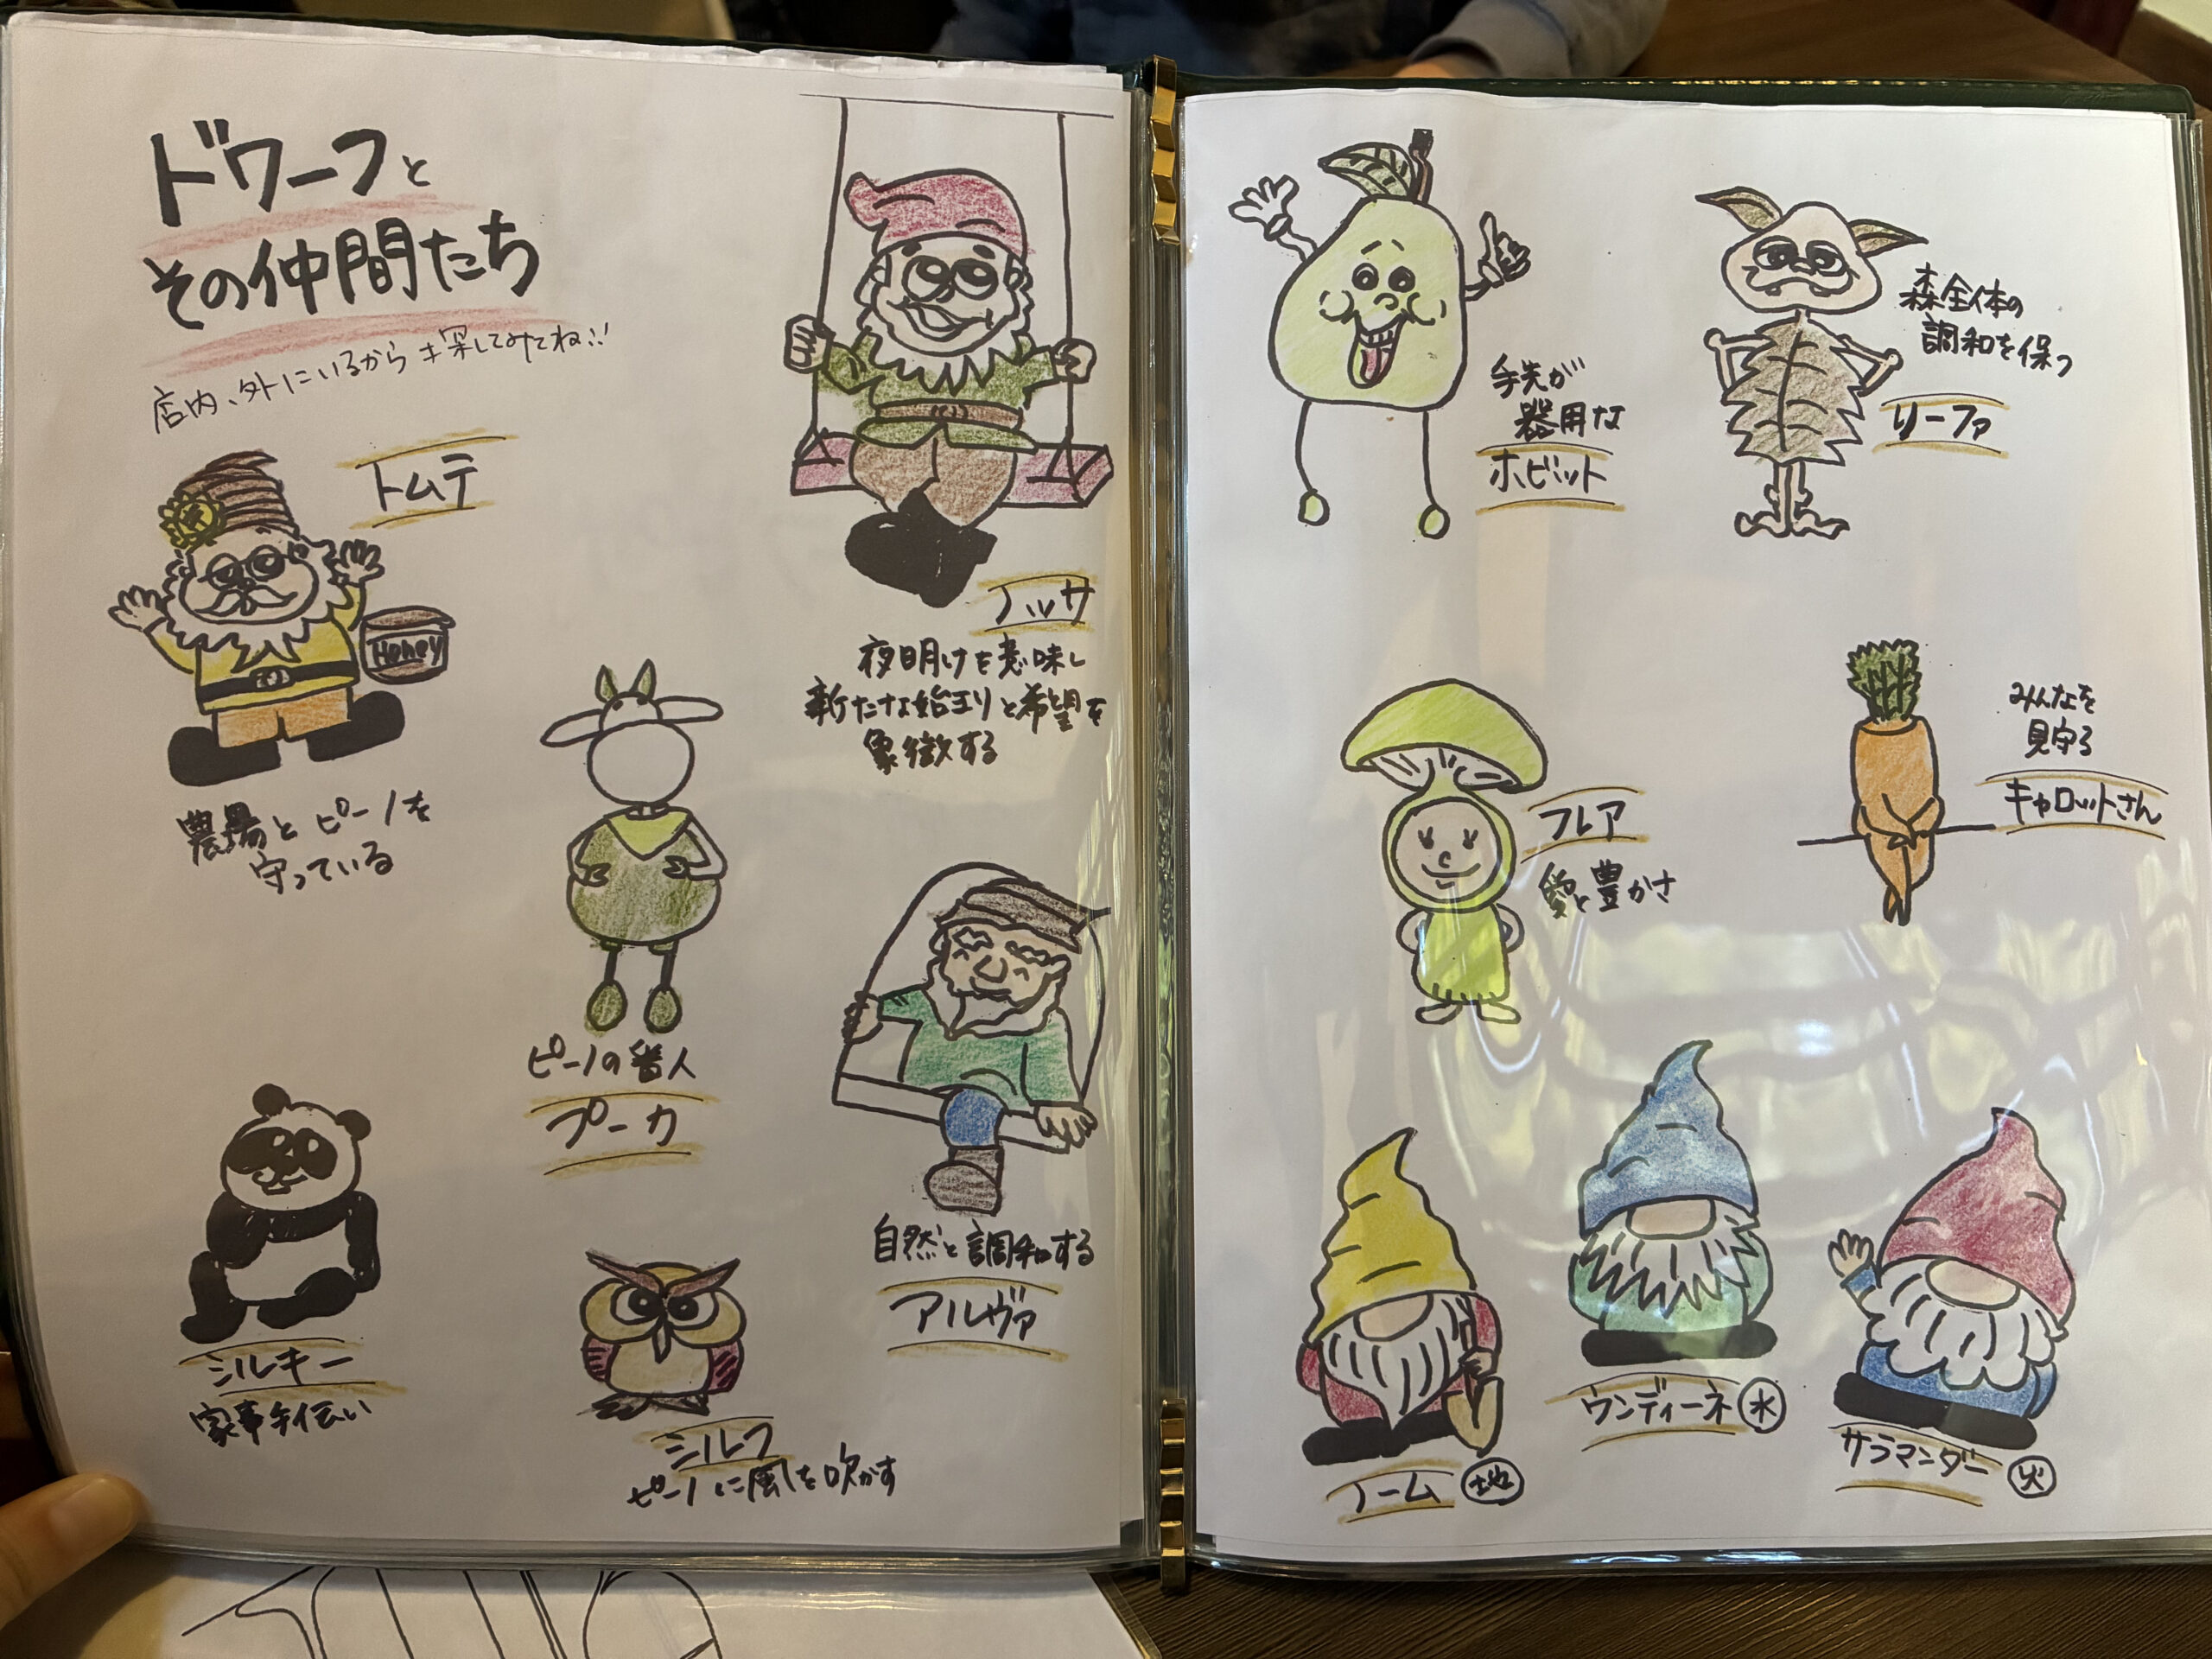 ドワーフと
その仲間たち
店内、外にいるから探してみてね!!
トムテ
Honey
農場とピーノを
守っている
ノッサ
夜明けを意味し
新たな始まりと希望を
象徴する
ピーノの番人
プーカ
自然と調和する
アルヴァ
シルキー
家事手伝い
シルフ
ピーノに風を吹かす
手先が
器用な
ホビット
森全体の
調和を保つ
リーファ
フレア
愛と豊かさ
みんなを
見守る
キャロットさん
ノーム 地
ウンディーネ 水
サラマンダー 火